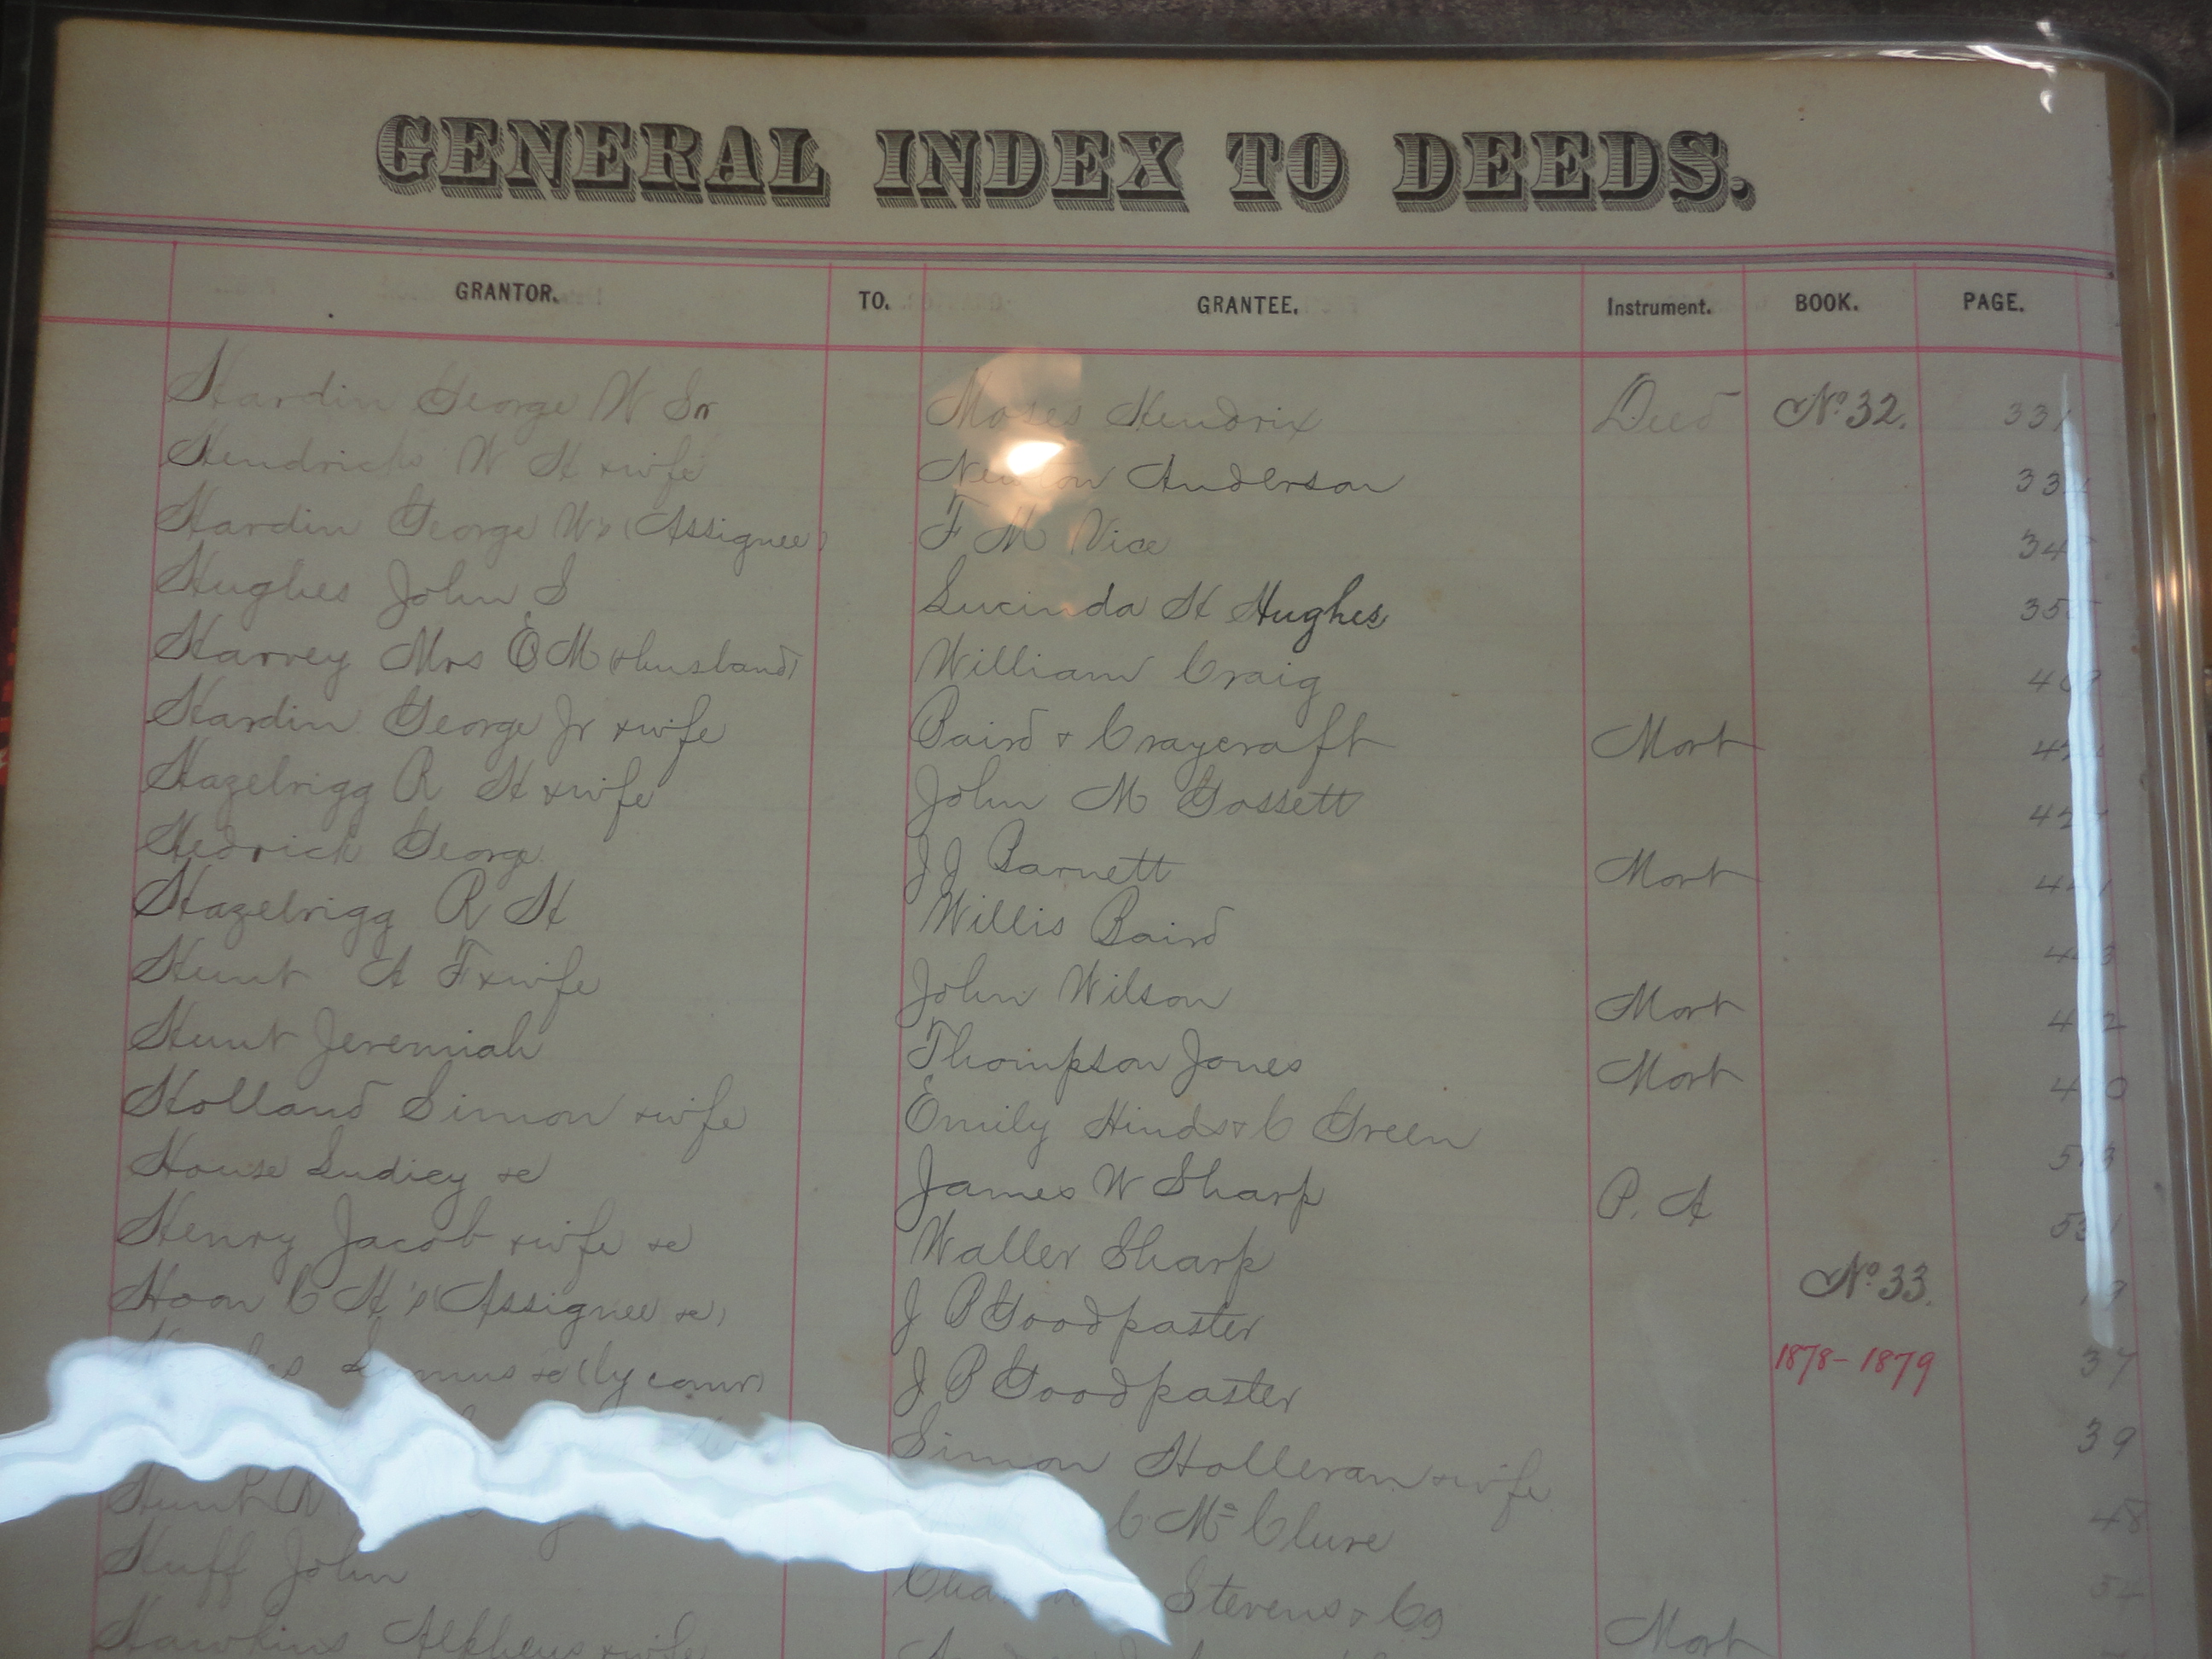 GENERAL INDEX TO DEEDS.
GRANTOR. TO. GRANTEE. Instrument. BOOK. PAGE.
Hardin George W Sr Moses Hendrix Deed No 32. 331
Hendricks W H & wife Newton Anderson
Hardin George W's (Assignee) F M Vice
Hughes John S Lucinda H Hughes
Harvey Mrs E M (& husband) William Craig
Hardin George Jr & wife Baird & Craycraft Mort
Hazelrigg R H & wife John M Gossett
Hedrick George J J Barnett Mort
Hazelrigg R H Willis Baird
Hunt A F & wife John Wilson Mort
Hunt Jeremiah Thompson Jones Mort
Holland Simon & wife Emily Hinds & C Green
House Ludicy &c James W Sharp P. A
Henry Jacob & wife &c Waller Sharp No 33.
Hoon C H's (Assignee &c) J P Goodpaster 1878-1879 37
&c (by comr) J P Goodpaster 39
Simon Holleran & wife 48
Hunt C Mc Clure 54
Huff John Stevens & Co
Hawkins Alpheus & wife Mort